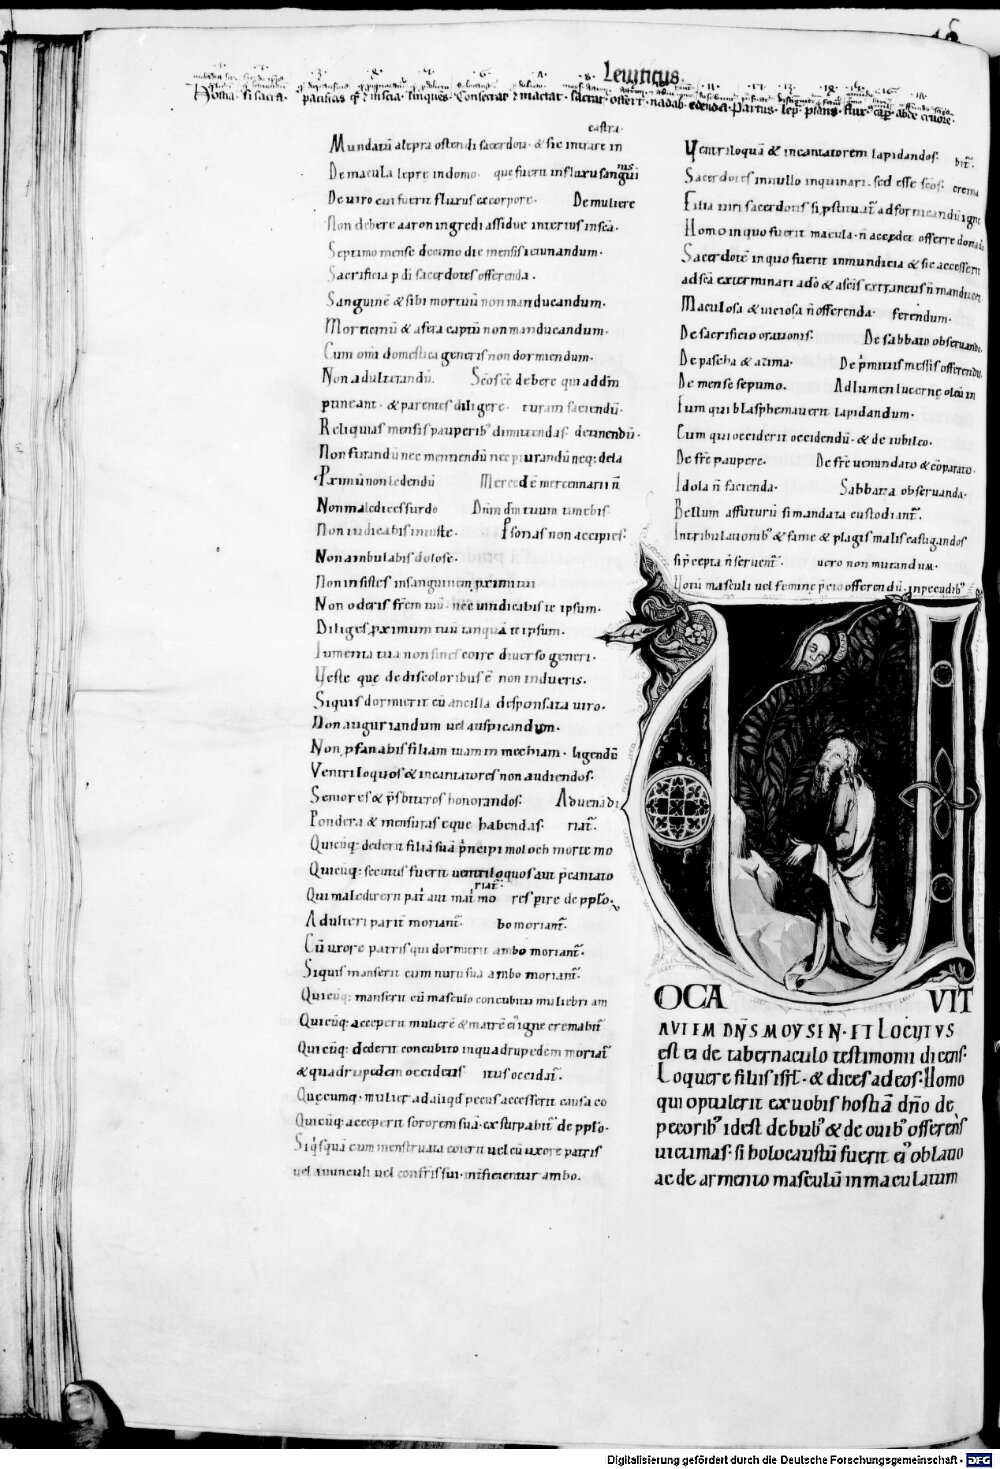 Leuiticus
Hostia. si sacrificia. pacificas linques. Consecrat mactat. sacrat. offert. nadab. edenda. Partus. lep. abde cruore.
castra.
Mundatū a lepra ostendi sacerdoti. & sic intrare in
De macula lepre in domo. que fuerit in fluxu sangui
nis.
De uiro cui fuerit fluxus ex corpore. De muliere
Non debere aaron ingredi assidue interius in scā.
Septimo mense decimo die mensis ieiunandum.
Sacrificia p di sacerdotes offerenda.
Sanguinē & sibi mortuū non manducandum.
Morticinū & a fera captū non manducandum.
Cum omi domestica generis non dormiendum.
Non adulterandū. Scōs eē debere qui addm̄
ptineant. & parentes diligere. turam faciendū.
Reliquias mensis pauperib; dimittendas. de unendū.
Non furandū nec mentiendū nec piurandū neq; dela
Pximū non ledendū Mercedē mercennarii n̄
Non maledices surdo Dnm dm̄ tuum timebis.
Non iudicabis iniuste. Psonas non accipies.
Non ambulabis dolose.
Non insistes in sanguinem proximi tui
Non oderis frēm tuū. nec uindicabis te ipsum.
Diliges pximum tuū tanquā te ipsum.
Iumenta tua non sines coire diuerso generi.
Ueste que de discoloribus ē non indueris.
Siquis dormierit cū ancilla desponsata uiro.
Non auguriandum uel auspicandum.
Non pfanabis filiam tuam in mechiam. ligendū
Ventriloquos & incantatores non audiendos.
Seniores & pr̄sbiteros honorandos. Aduenā di
Pondera & mensuras eque habendas. riat̄.
Quicūq; dederit filiā suā principi moloch morte mo
Quicūq; secutus fuerit uentriloquos aut p̄cantato
riat̄.
Qui maledixerit pat̄ aut mat̄ mo res pire de pplo.
Adulteri parit̄ moriant̄. bo moriant̄.
Cū uxore patris qui dormierit ambo moriant̄.
Siquis manserit cum nuru sua ambo moriant̄.
Quicūq; manserit cū masculo concubitu muliebri am
Quicūq; acceperit mulierē & matrē ei' igne cremabit̄
Quicūq; dederit concubito in quadrupedem moriat̄
& quadrupedem occidetis itus occidat̄.
Quecumq. mulier ad aliqd pecus accesserit causa co
Quicūq; acceperit sororem suā. exstirpabit̄ de pplo.
Siq's quā cum menstruata coierit uel cū uxore patris
uel auunculi uel confris sui. int̄ficientur ambo.
Ventriloquā & incantatorem lapidandos. bit̄.
Sacerdotes in nullo inquinari. sed esse scōs. crema
Filia uiri sacerdotis si pstituat̄ ad fornicandū igne
Homo in quo fuerit macula. n̄ accedet offerre dona dō
Sacerdotē in quo fuerit inmundicia & sic accesserit
ad scā exterminari a dō & a scīs extraneus n̄ manducet
Maculosa & uiciosa n̄ offerenda. ferendum.
De sacrificio orationis. De sabbato obseruandi.
De pascha & azima. De pmitiis messis offerendis.
De mense septimo. Ad lumen lucerne oleū in
Eum qui blasphemauerit lapidandum.
Cum qui occiderit occidendū. & de iubileo.
De frē paupere. De frē uenundato & cōparato.
Idola n̄ facienda. Sabbata obseruanda.
Bellum affuturū si mandata custodiant̄.
In tribulationib; & fame & plagis malis castigandos
si pcepta n̄ seruent̄. uero non mutandum.
Uotū masculi uel femine p̄cio offerendū. in pecudib;
OCA VIT
AVTEM DN̄S MOYSEN. ET LOCVTVS
est ei de tabernaculo testimonii dicens.
Loquere filiis isrl. & dices ad eos. Homo
qui optulerit ex uobis hostiā dn̄o de
pecorib; id est de bub; & de ouib; offerens
uictimas. si holocaustū fuerit ei' oblatio
ac de armento masculū inmaculatum
Digitalisierung gefördert durch die Deutsche Forschungsgemeinschaft - DFG